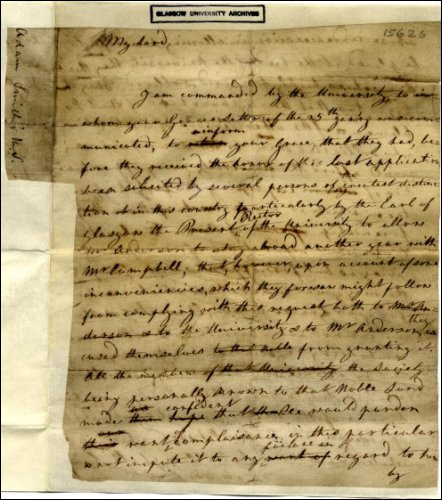 GLASGOW UNIVERSITY ARCHIVES
15626
Adam Smith's
My Lord
I am commanded by the University to in
whom your Grace's letter of the 25th was com
municated, to
inform
your Grace, that they had, be
fore they received the honor of this last application
been solicited by several persons of the greatest distinc
tion in this country, particularly by the Earl of
Glasgow the Present
Rector
of the University to allow
Mr Anderson to stay abroad another year with
Mr Campbell; that, however, upon account of some
inconveniencies, which they foresaw might follow
from complying with this request, both to
derson & to the University & to Mr Anderson, they
cused themselves to that Noble from granting it.
All the members of the University the Society
being personally known to that Noble Lord
made
us confident
that he would pardon
this want of complaisance in this particular
& not impute it to any
failure in
want of regard, to him
by